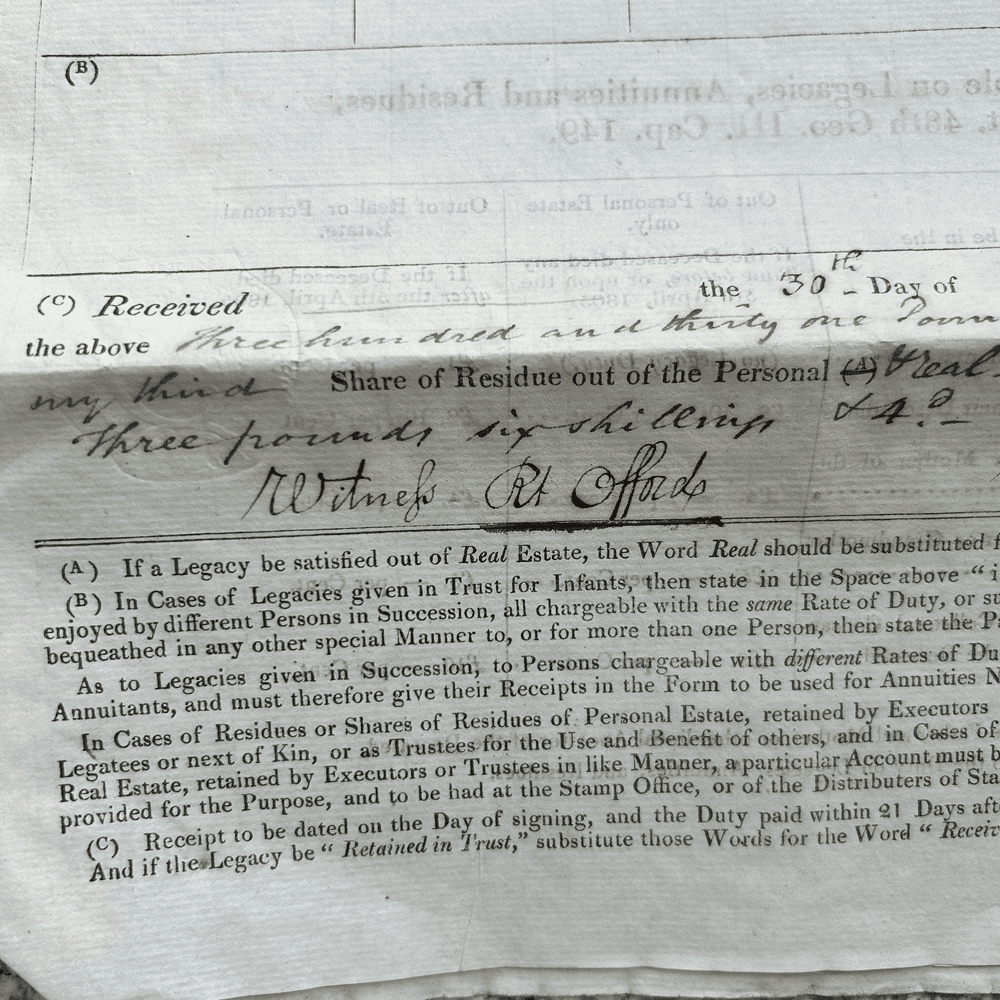 (B)
(C) Received the 30th Day of
the above Three hundred and thirty one Poun
my third Share of Residue out of the Personal (A) & real
Three pounds six shillings & 4d
Witness Rt Offords
(A) If a Legacy be satisfied out of Real Estate, the Word Real should be substituted f
(B) In Cases of Legacies given in Trust for Infants, then state in the Space above “ i
enjoyed by different Persons in Succession, all chargeable with the same Rate of Duty, or su
bequeathed in any other special Manner to, or for more than one Person, then state the Pa
As to Legacies given in Succession, to Persons chargeable with different Rates of Du
Annuitants, and must therefore give their Receipts in the Form to be used for Annuities N
In Cases of Residues or Shares of Residues of Personal Estate, retained by Executors
Legatees or next of Kin, or as Trustees for the Use and Benefit of others, and in Cases of
Real Estate, retained by Executors or Trustees in like Manner, a particular Account must b
provided for the Purpose, and to be had at the Stamp Office, or of the Distributers of Sta
(C) Receipt to be dated on the Day of signing, and the Duty paid within 21 Days aft
And if the Legacy be “ Retained in Trust,” substitute those Words for the Word “ Receiv